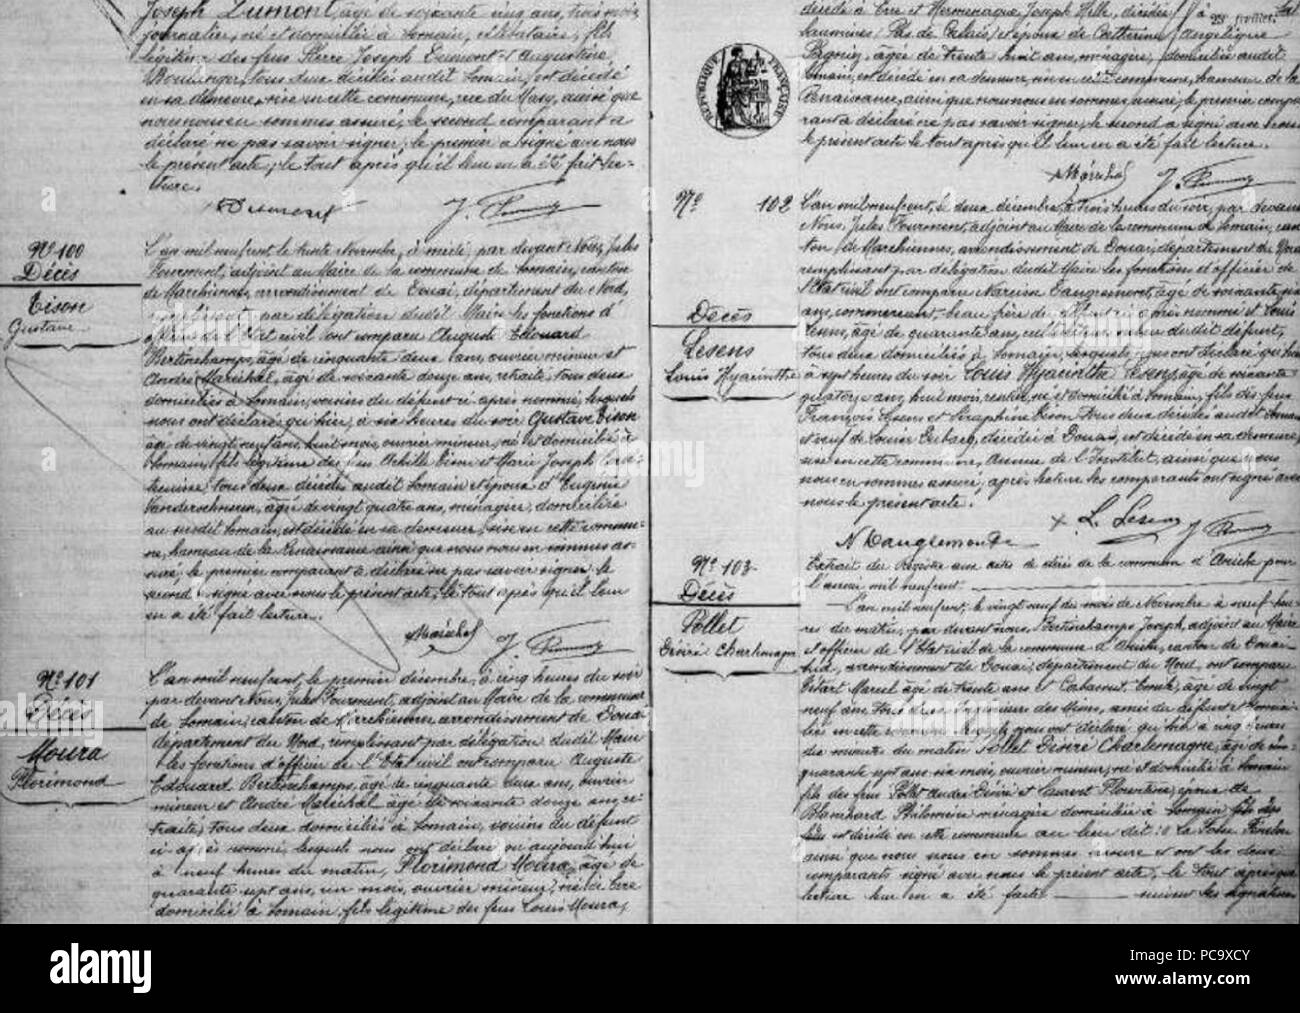 Joseph Dumont, âgé de soixante cinq ans, trois mois,
journalier, né et domicilié à Somain, célibataire, fils
légitime des feus Pierre Joseph Dumont et Augustine
Boulanger, tous deux décédés audit Somain, est décédé
en sa demeure, sise en cette commune, rue du Marq, ainsi que
nous nous en sommes assuré, le second comparant a
déclaré ne pas savoir signer, le premier a signé avec nous
le présent acte, le tout après qu'il leur en a été fait lec-
ture.
N° 100
Décès
Tison
Gustave
L'an mil neuf cent le trente Novembre, à midi, par devant Nous, Jules
Fourment, adjoint au Maire de la commune de Somain, canton
de Marchiennes, arrondissement de Douai, département du Nord,
remplissant par délégation dudit Maire les fonctions d'
officier de l'Etat civil ont comparu Auguste Edouard
Bertinchamps, âgé de cinquante deux ans, ouvrier mineur et
André Maréchal, âgé de soixante douze ans, retraité, tous deux
domiciliés à Somain, voisins du défunt ci après nommé, lesquels
nous ont déclaré qu'hier, à six heures du soir Gustave Tison
âgé de vingt sept ans, huit mois, ouvrier mineur, né et domicilié à
Somain, fils légitime des feus Achille Tison et Marie Joseph
tous deux décédés audit Somain et époux d'Eugénie
âgée de vingt quatre ans, ménagère, domiciliée
au susdit Somain, est décédé en sa demeure, sise en cette commu-
ne, hameau de la Renaissance ainsi que nous nous en sommes as-
suré, le premier comparant a déclaré ne pas savoir signer, le
second a signé avec nous le présent acte, le tout après qu'il leur
en a été fait lecture.
Maréchal
N° 101
Décès
Moura
Florimond
L'an mil neuf cent, le premier décembre, à cinq heures du soir
par devant Nous, Jules Fourment, adjoint au Maire de la commune
de Somain, canton de Marchiennes arrondissement de Douai
département du Nord, remplissant par délégation dudit Maire
les fonctions d'officier de l'Etat civil ont comparu Auguste
Edouard Bertinchamps, âgé de cinquante deux ans, ouvrier
mineur et André Maréchal âgé de soixante douze ans, re-
traité, tous deux domiciliés à Somain, voisins du défunt
ci après nommé, lesquels nous ont déclaré qu'aujourd'hui
à neuf heures du matin, Florimond Moura, âgé de
quarante sept ans, un mois, ouvrier mineur, né à Erre
domicilié à Somain, fils légitime des feus Louis Moura,
décédé à Erre et Hermenague Joseph Hille, décédée à
23 juillet
Saumines (Pas de Calais) et époux de Catherine Angélique
âgée de trente huit ans, ménagère, domiciliée audit
Somain, est décédé en sa demeure, sise en cette commune, hameau de la
Renaissance, ainsi que nous nous en sommes assuré, le premier compa-
rant a déclaré ne pas savoir signer, le second a signé avec nous
le présent acte le tout après qu'il leur en a été fait lecture.
RÉPUBLIQUE FRANÇAISE
Maréchal
N° 102
Décès
Lesens
Louis Hyacinthe
L'an mil neuf cent, le deux décembre, à trois heures du soir, par devant
Nous, Jules Fourment, adjoint au Maire de la commune de Somain, can-
ton de Marchiennes, arrondissement de Douai, département du Nord
remplissant par délégation dudit Maire les fonctions d'officier de
l'Etat civil ont comparu Narcisse Danglemont, âgé de soixante
ans, commerçant, beau frère du défunt ci après nommé et Louis
Lesens, âgé de quarante ans, cultivateur, neveu du dit défunt,
tous deux domiciliés à Somain, lesquels nous ont déclaré qu'hier
à sept heures du soir Louis Hyacinthe Lesens, âgé de soixante
quatorze ans, huit mois, rentier, né et domicilié à Somain, fils des feus
François Lesens et Séraphine Tison tous deux décédés audit Somain
et veuf de Louise Dubacq, décédée à Douai, est décédé en sa demeure,
sise en cette commune, Avenue de l'Institut, ainsi que nous
nous en sommes assuré, après lecture les comparants ont signé avec
nous le présent acte.
L. Lesens
N Danglemont
N° 103
Décès
Pollet
Désiré Charlemagne
Extrait du Registre aux actes de décès de la commune d'Aniche pour
l'année mil neuf cent.
L'an mil neuf cent, le vingt neuf du mois de Novembre à neuf heu-
res du matin, par devant nous, Bertinchamps Joseph, adjoint au Maire
et officier de l'Etat civil de la commune d'Aniche, canton de Douai-
Sud, arrondissement de Douai, département du Nord, ont comparu
Marcel âgé de trente ans et Cabaret Emile, âgé de vingt
neuf ans tous deux Ingénieurs des Mines, amis du défunt et domici-
liés en cette commune lesquels nous ont déclaré qu'hier à cinq heures
dix minutes du matin Pollet Désiré Charlemagne, âgé de cin-
quante sept ans six mois, ouvrier mineur, né et domicilié à Somain
fils des feus Pollet André Désiré et Laurent Florentine, époux de
Blanchard Philomène ménagère domiciliée à Somain
est décédé en cette commune au lieu dit : La Fosse Fénelon
ainsi que nous nous en sommes assuré et ont les deux
comparants signé avec nous le présent acte, le tout après que
lecture leur en a été faite. suivent les signatures